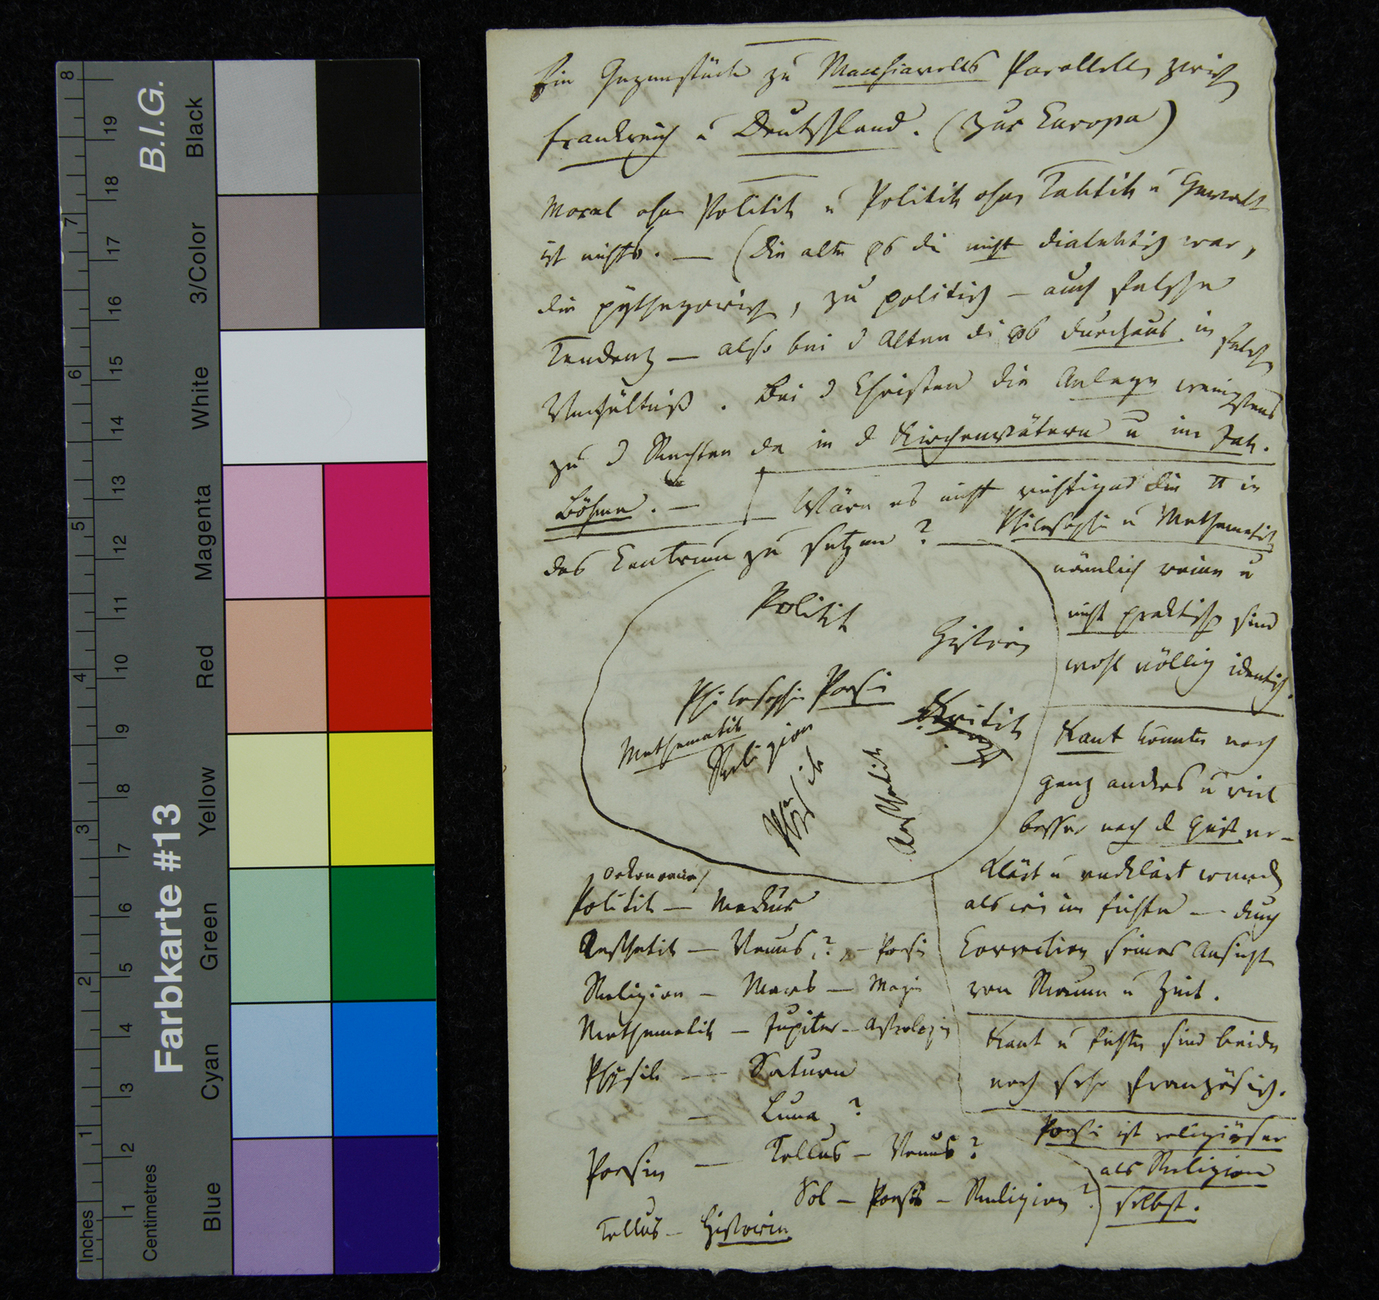 B.I.G.
Farbkarte #13
Black
3/Color
White
Magenta
Red
Yellow
Green
Cyan
Blue
Inches
Centimetres
8
7
6
5
4
3
2
1
19
18
17
16
15
14
13
12
11
10
9
8
7
6
5
4
3
2
1
Ein Gegenstück zu Macchiavells Parallele zwisch
Frankreich u Deutschland. (Zur Europa)
Moral ohne Politik u Politik ohne Taktik u Gewalt
ist nichts. — (Die alte φσ die nicht dialektisch war,
die pythagorisch, zu politisch — auch falsche
Tendenz — also bei d Alten die φσ durchaus in falsch
Verhältniß. Bei d Christen die Anlage wenigstens
zu d Rechten da in d Kirchenvätern u im Jak.
Böhme. — Wäre es nicht richtiger die π in
das Centrum zu setzen? —
Philosophie u Mathematik
nämlich reine u
nicht praktische sind
wohl völlig identisch.
Politik
Historie
Philosophie Poesie
Kritik
Mathematik
Religion
Physik
Aesthetik
Kant könnte noch
ganz anders u viel
besser nach d Geist er-
klärt u verklärt werden
als wie im Fichte — durch
Correction seiner Ansicht
von Raum u Zeit.
Kant u Fichte sind beide
noch sehr französisch.
Poesie ist religiöser
als Religion
selbst.
(oekonomie)
Politik — Merkur
Aesthetik — Venus? — Poesie
Religion — Mars — Magie
Mathematik — Jupiter — Astrologie
Physik — Saturn
— Luna ?
Poesie — Tellus — Venus?
Sol — Poesie — Religion?
Tellus — Historie